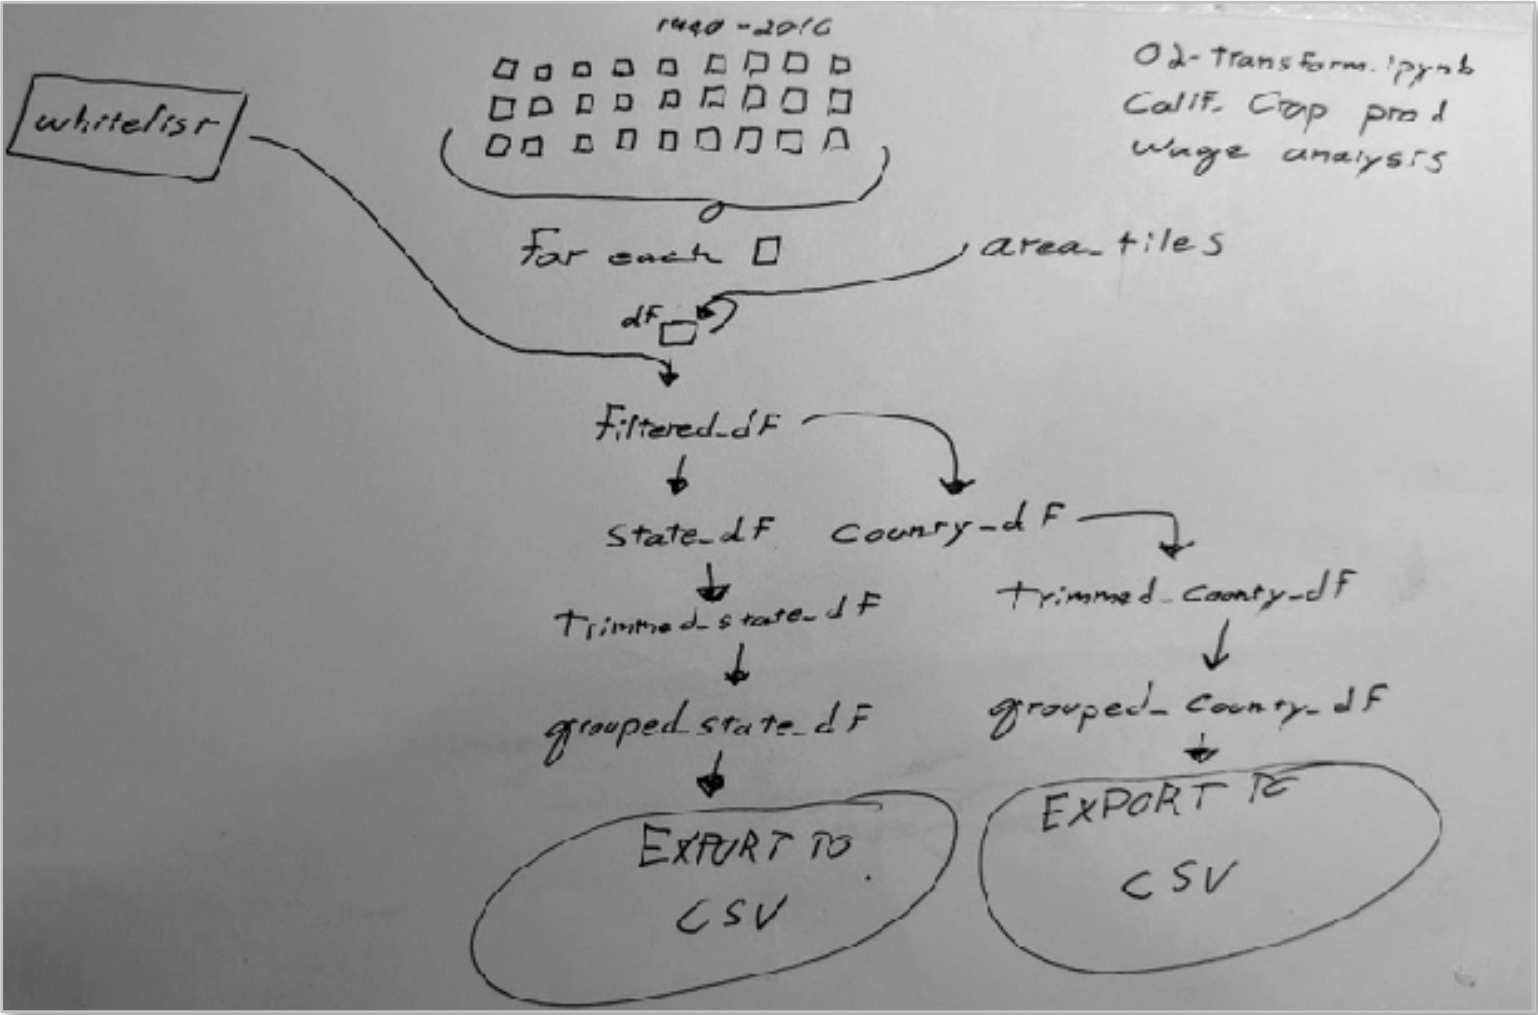 1990-2016
02-Transform.ipynb
Calif. Crop prod
wage analysis
whitelist
For each
area_tiles
df
Filtered_df
state_df
county_df
Trimmed_state_df
Trimmed_county_df
grouped_state_df
grouped_county_df
EXPORT TO
CSV
EXPORT TO
CSV